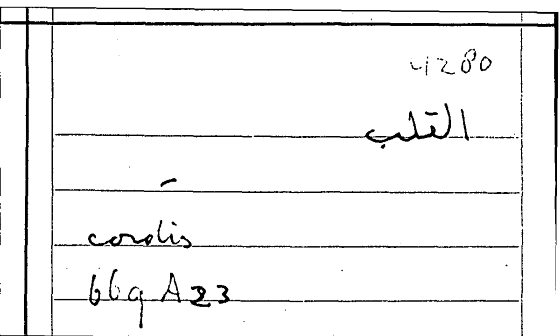 4280
القلب
-
cordis
66q A23